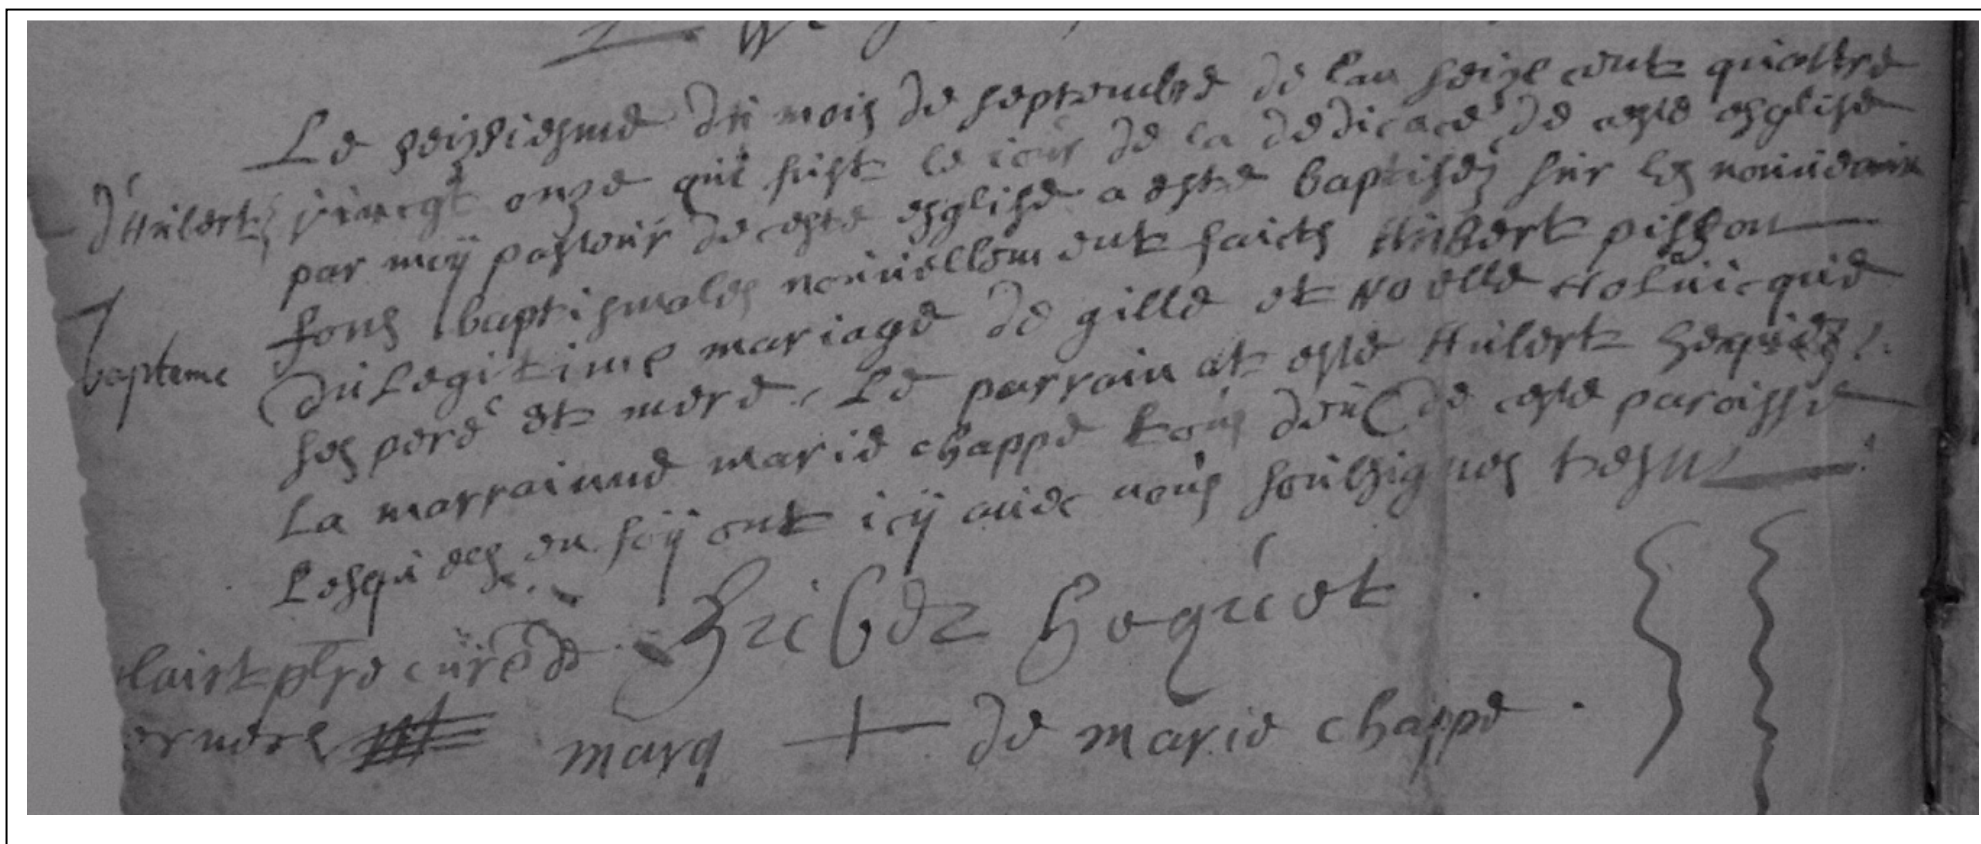 Le seiziesme du mois de septembre de l'an seize cent quattre
vincgt onze qui fust le iour de la dedicace de ceste esglise
d'Hubert
par moÿ pasteur de ceste esglise a esté baptisez sur les nouueaux
fons baptismales nouuellement faicts Hubert pisson
du Legitime mariage de gille et Noelle
bapteme
ses pere et mere. Le parrain at esté Hubert
La marrainne marie chappe tous deux de ceste paroisse
Lesquels en foÿ ont icÿ auec nous soubsignes
plre curé de
Hoquet
marq + de marie chappe